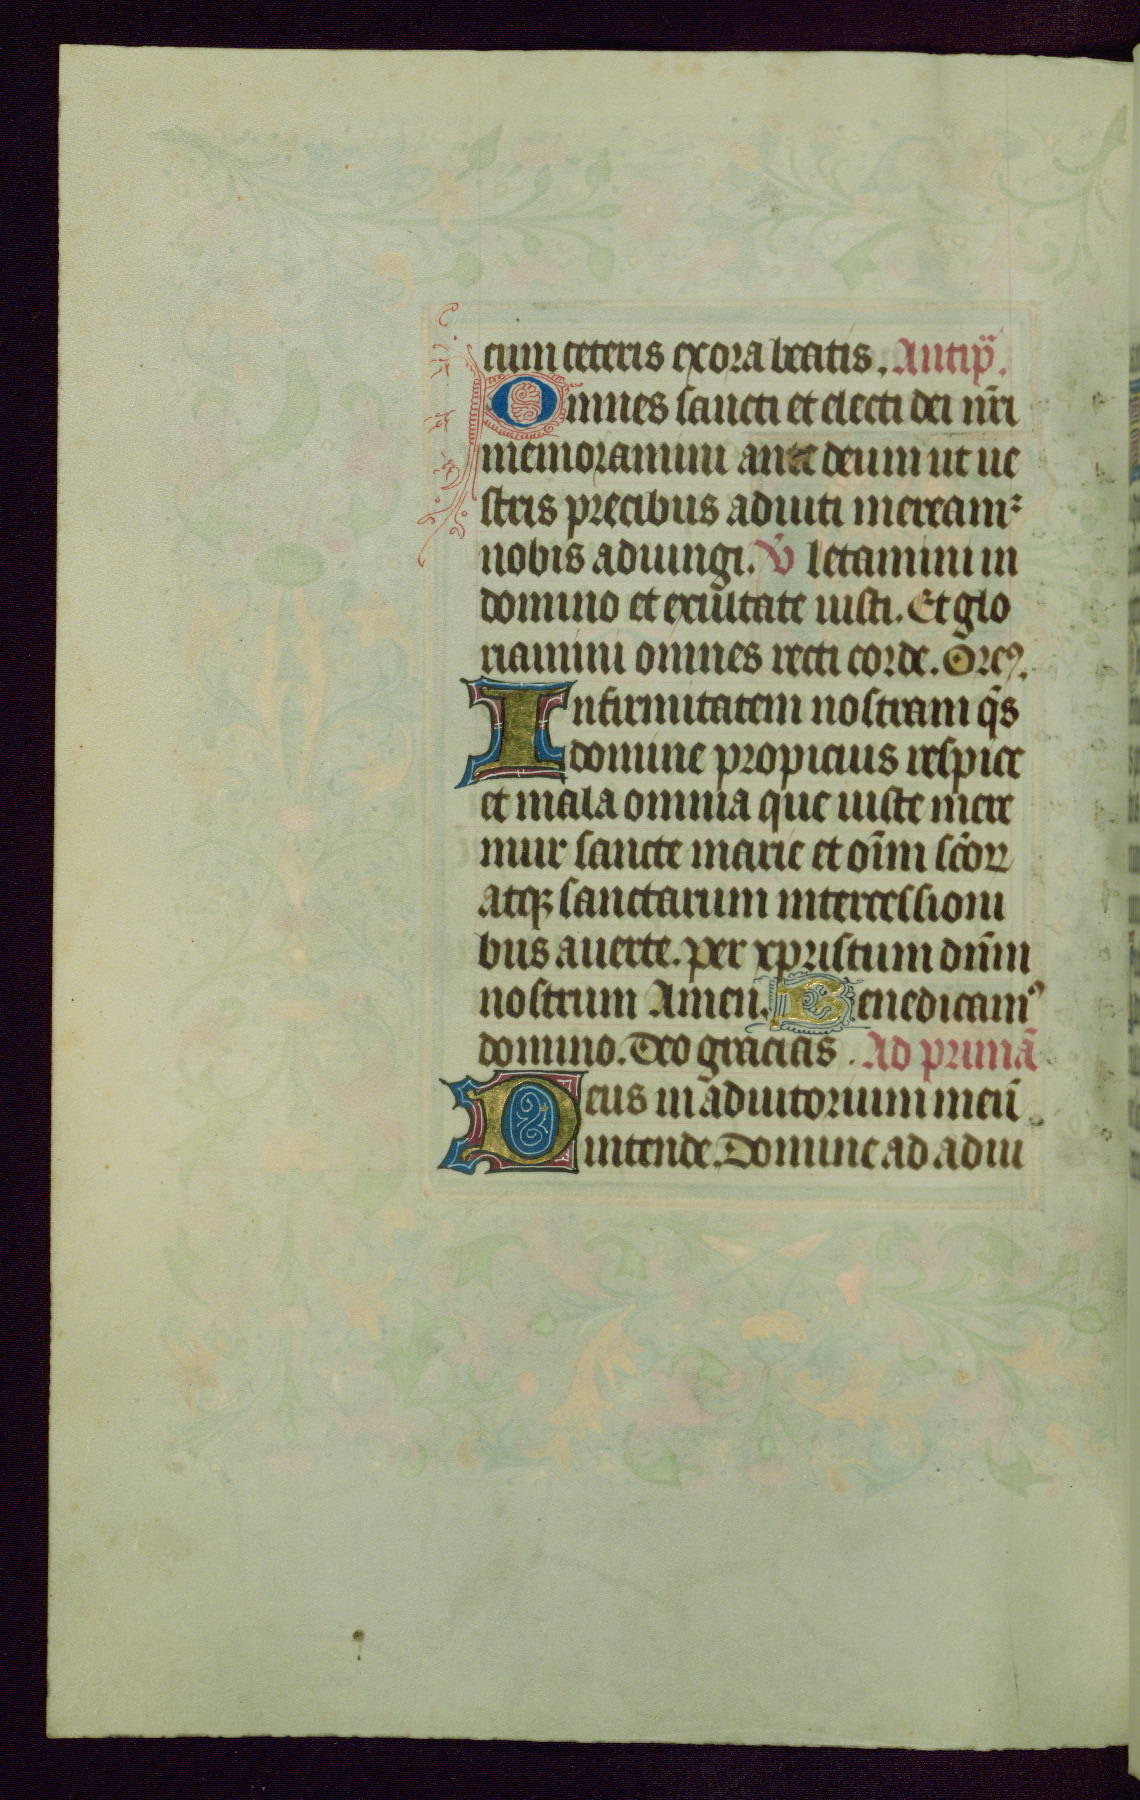 cum ceteris exora beatis. Antiph̃.
Omnes sancti et electi dei nr̃i
memoramini ante deum ut ue
stris precibus adiuti meream̃
nobis adiungi. V̾ letamini in
domino et exultate iusti. Et glo
riamini omnes recti corde. Orẽꝰ.
Infirmitatem nostram qs̃
domine propicius respice
et mala omnia que iuste mere
mur sancte marie et oĩm sc̃oꝝ
atqꝫ sanctarum intercessioni
bus auerte. per xpristum dñm
nostrum Amen. Benedicamꝰ
domino. Deo gracias. Ad primã
Deus in adiutorium meũ
intende. Domine ad adiu